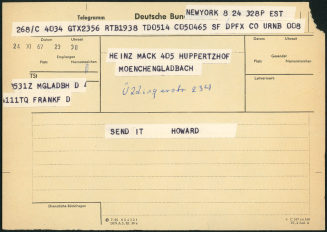 NEWYORK 8 24 328P EST
Telegramm
Deutsche Bun
268/C 4034 GTX2356 RTB1938 TD0514 CO50465 SF DPFX CO URNB 008
Datum
Uhrzeit
24 10 67 23 28
HEINZ MACK 405 HUPPERTZHOF
MOENCHENGLADBACH
Empfangen
Platz
Namenszeichen
Datum
Uhrzeit
Platz
Namenszeichen
TSI
0531Z MGLADBH D
4111TQ FRANKF D
234
SEND IT HOWARD
Dienstliche Rückfragen